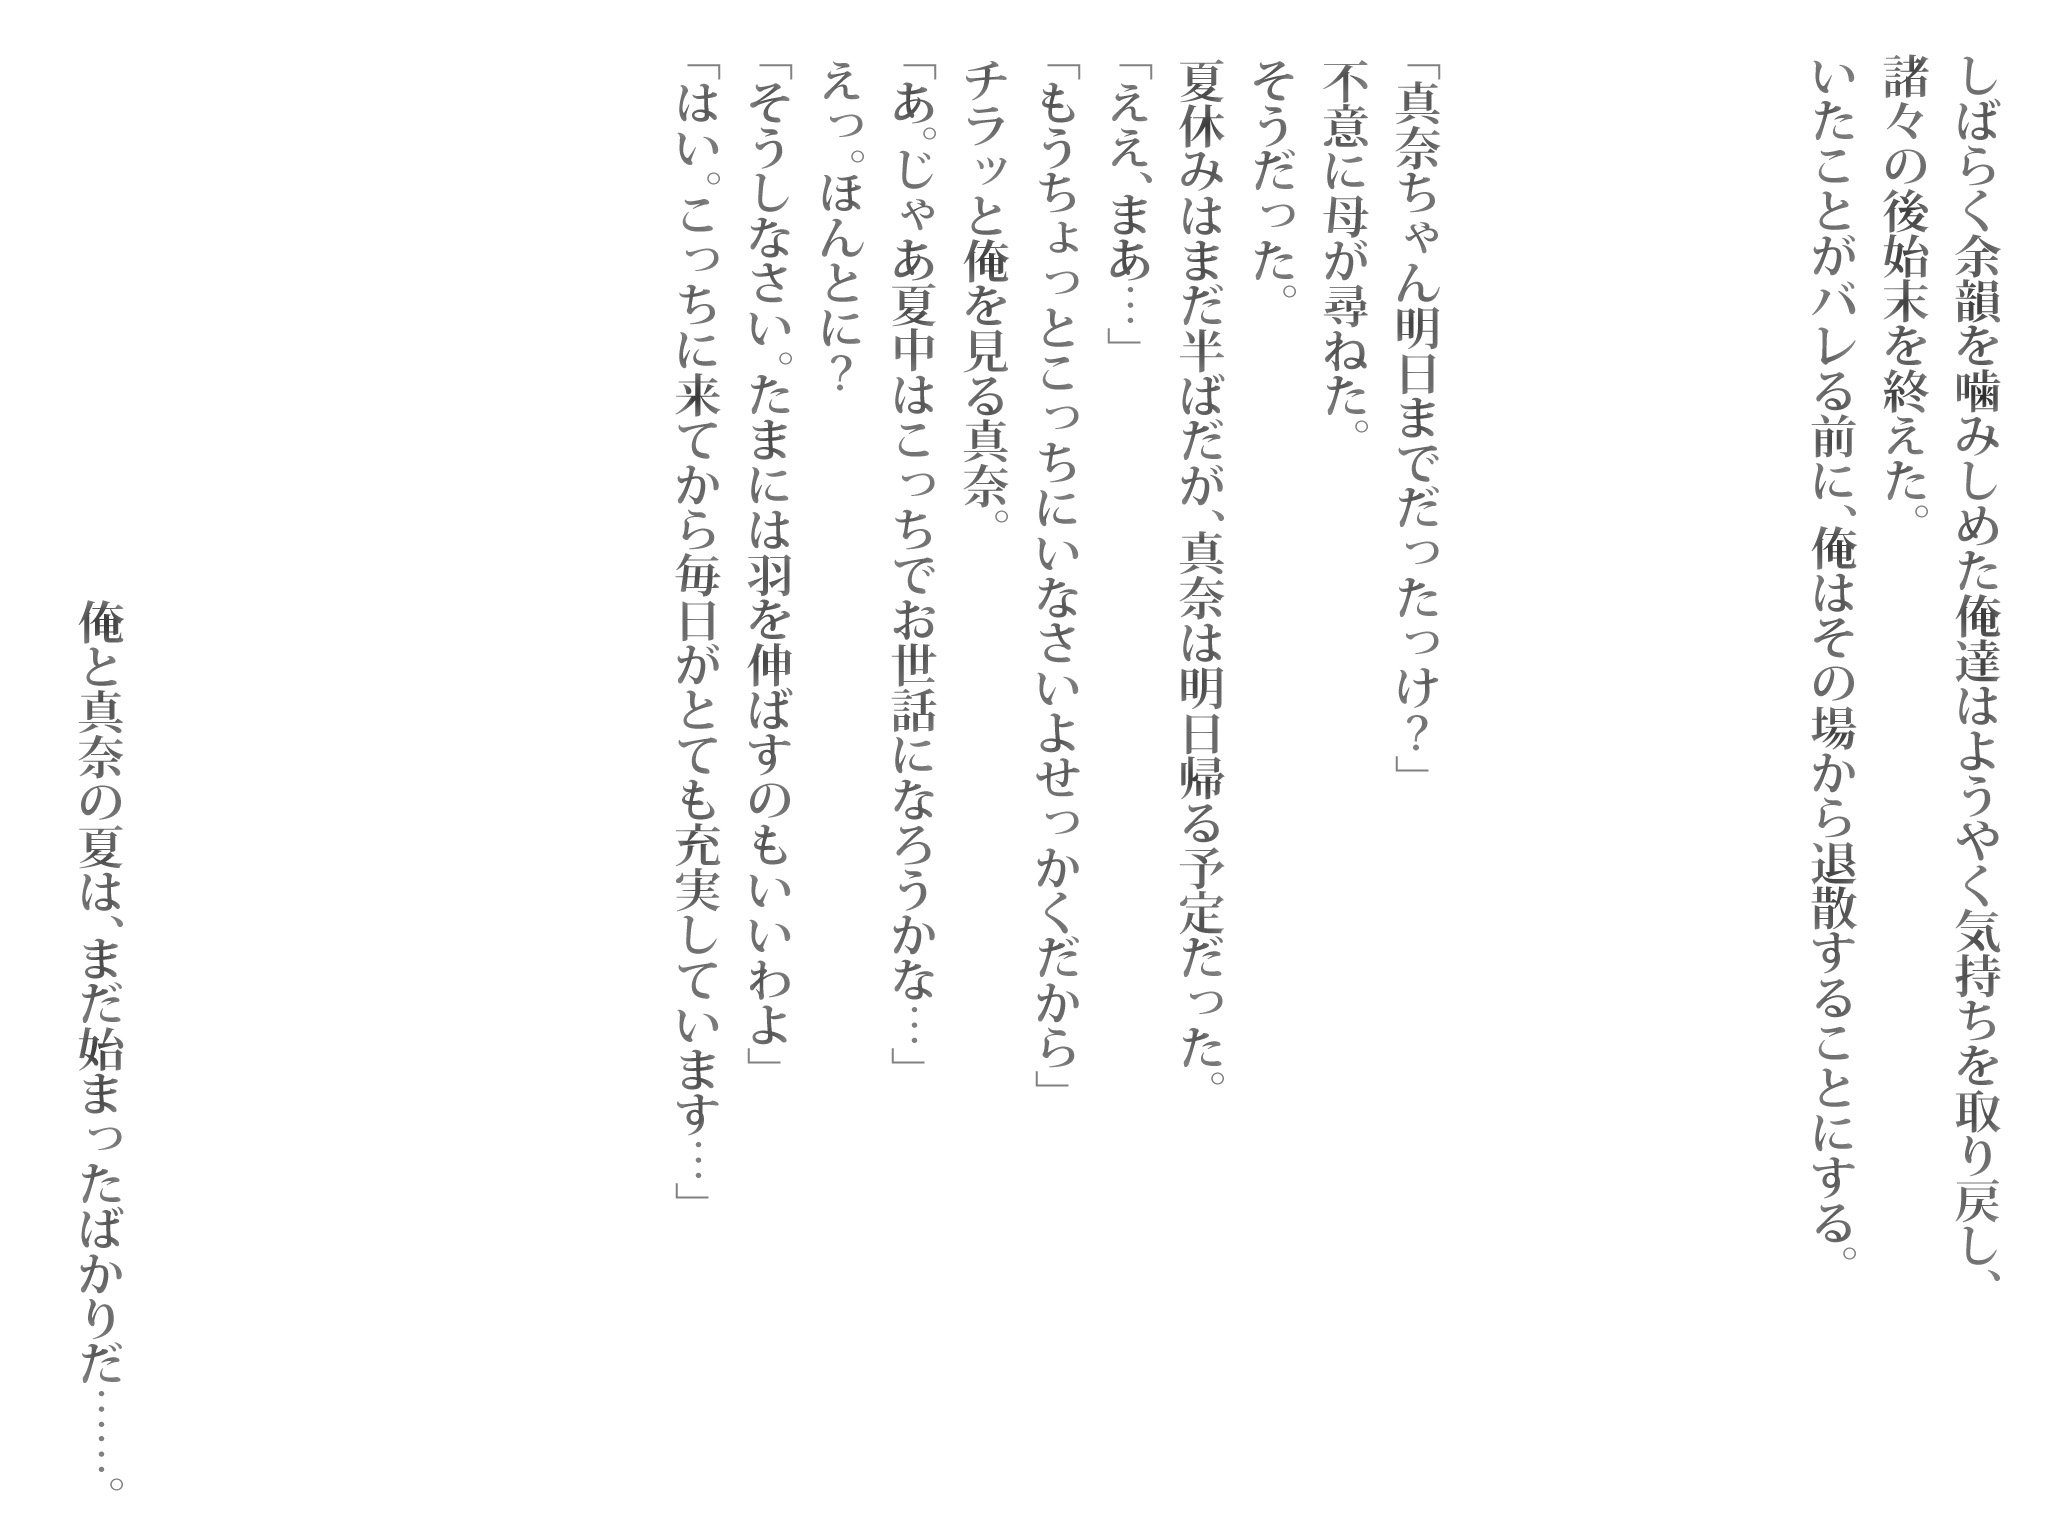 しばらく余韻を噛みしめた俺達はようやく気持ちを取り戻し、
諸々の後始末を終えた。
いたことがバレる前に、俺はその場から退散することにする。
「真奈ちゃん明日までだったっけ？」
不意に母が尋ねた。
そうだった。
夏休みはまだ半ばだが、真奈は明日帰る予定だった。
「ええ、まあ…」
「もうちょっとこっちにいなさいよせっかくだから」
チラッと俺を見る真奈。
「あ。じゃあ夏中はこっちでお世話になろうかな…」
えっ。ほんとに？
「そうしなさい。たまには羽を伸ばすのもいいわよ」
「はい。こっちに来てから毎日がとても充実しています…」
俺と真奈の夏は、まだ始まったばかりだ……。